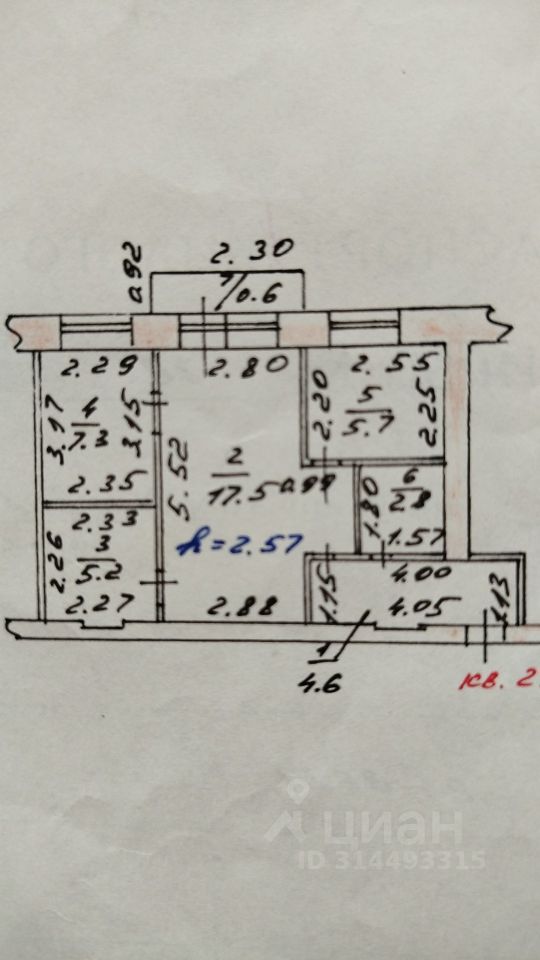 2.30
0.92
7/0.6
2.29
2.80
2.55
3.17
4
7.3
3.15
2.20
5
5.7
2.25
2.35
5.52
2
17.5
0.99
1.80
6
2.8
2.33
2.26
3
5.2
h=2.57
1.57
4.00
2.27
2.88
1.15
4.05
1.13
1
4.6
кв. 2
циан
ID 314493315